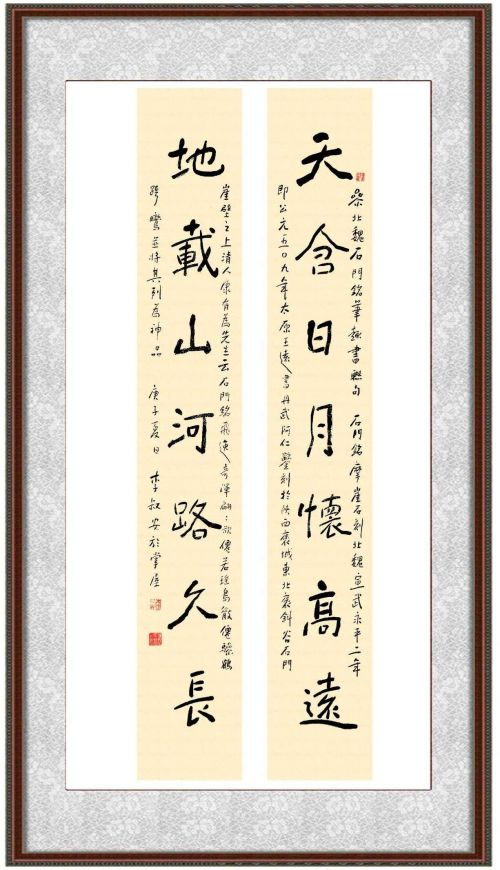 天含日月懷高遠
集北魏石門銘筆趣書聯句 石門銘摩崖石刻北魏宣武永平二年
即公元五〇九年太原王遠書丹武阿仁鑿刻於陝西褒城東北褒斜谷石門
地載山河路久長
崖壁之上清人康有為先生云石門銘飛逸奇渾翩翩欲僊若瑤島散僊驂鶴
跨鸞並將其列為神品 庚子夏日 李叔安於掌廬